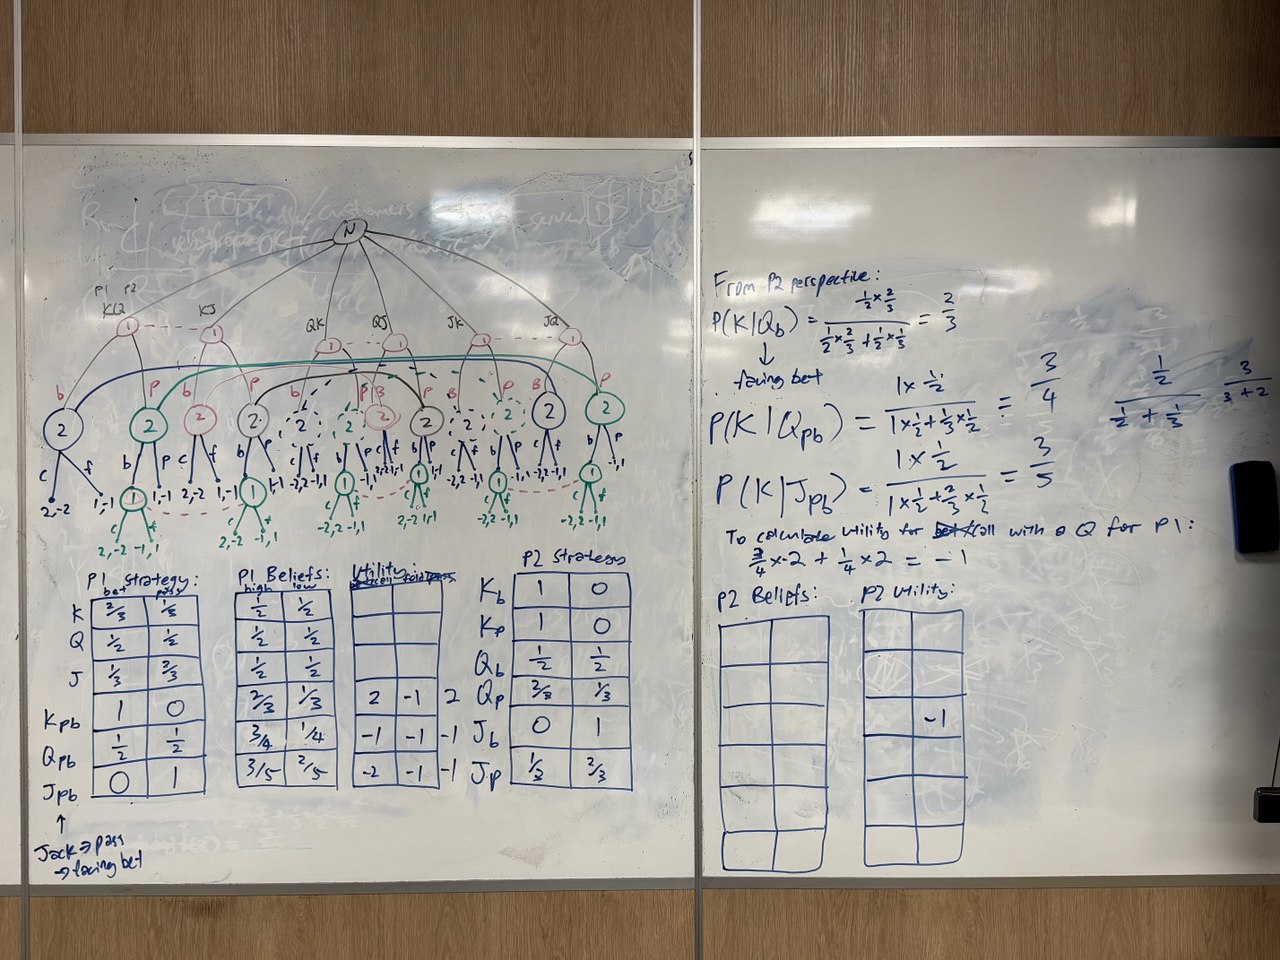 N
P1 P2
KQ KJ QK QJ JK JQ
1 1 1 1 1 1
b P b P b P B P B P B P
2 2 2 2 2 2 2 2 2 2 2 2
c f b P c f b P c f b P c f b P c f b P c f b P
2,-2 1,-1 1,-1 2,-2 1,-1 1,-1 -1,1
1 1 1 1 1 1
c f c f c f c f c f c f
2,-2 -1,1 2,-2 -1,1 -2,2 -1,1 2,-2 -1,1 -2,2 -1,1 -2,2 -1,1
P1 Strategy:
bet pass
K 2/3 1/3
Q 1/2 1/2
J 1/3 2/3
Kpb 1 0
Qpb 1/2 1/2
Jpb 0 1
↑
Jack → pass
→ facing bet
P1 Beliefs:
high low
1/2 1/2
1/2 1/2
1/2 1/2
2/3 1/3
3/4 1/4
3/5 2/5
Utility:
2 -1 2
-1 -1 -1
-2 -1 -1
P2 Strategy
Kb 1 0
Kp 1 0
Qb 1/2 1/2
Qp 2/3 1/3
Jb 0 1
Jp 1/3 2/3
From P2 perspective:
P(K|Qb) = (1/2 × 2/3) / (1/2 × 2/3 + 1/2 × 1/3) = 2/3
↓
facing bet
P(K|Qpb) = (1 × 1/2) / (1 × 1/2 + 1/3 × 1/2) = 3/4
P(K|Jpb) = (1 × 1/2) / (1 × 1/2 + 2/3 × 1/2) = 3/5
(1/2) / (1/2 + 1/3) 3/(3+2)
To calculate utility for call with a Q for P1:
3/4 × -2 + 1/4 × 2 = -1
P2 Beliefs:
P2 Utility:
-1